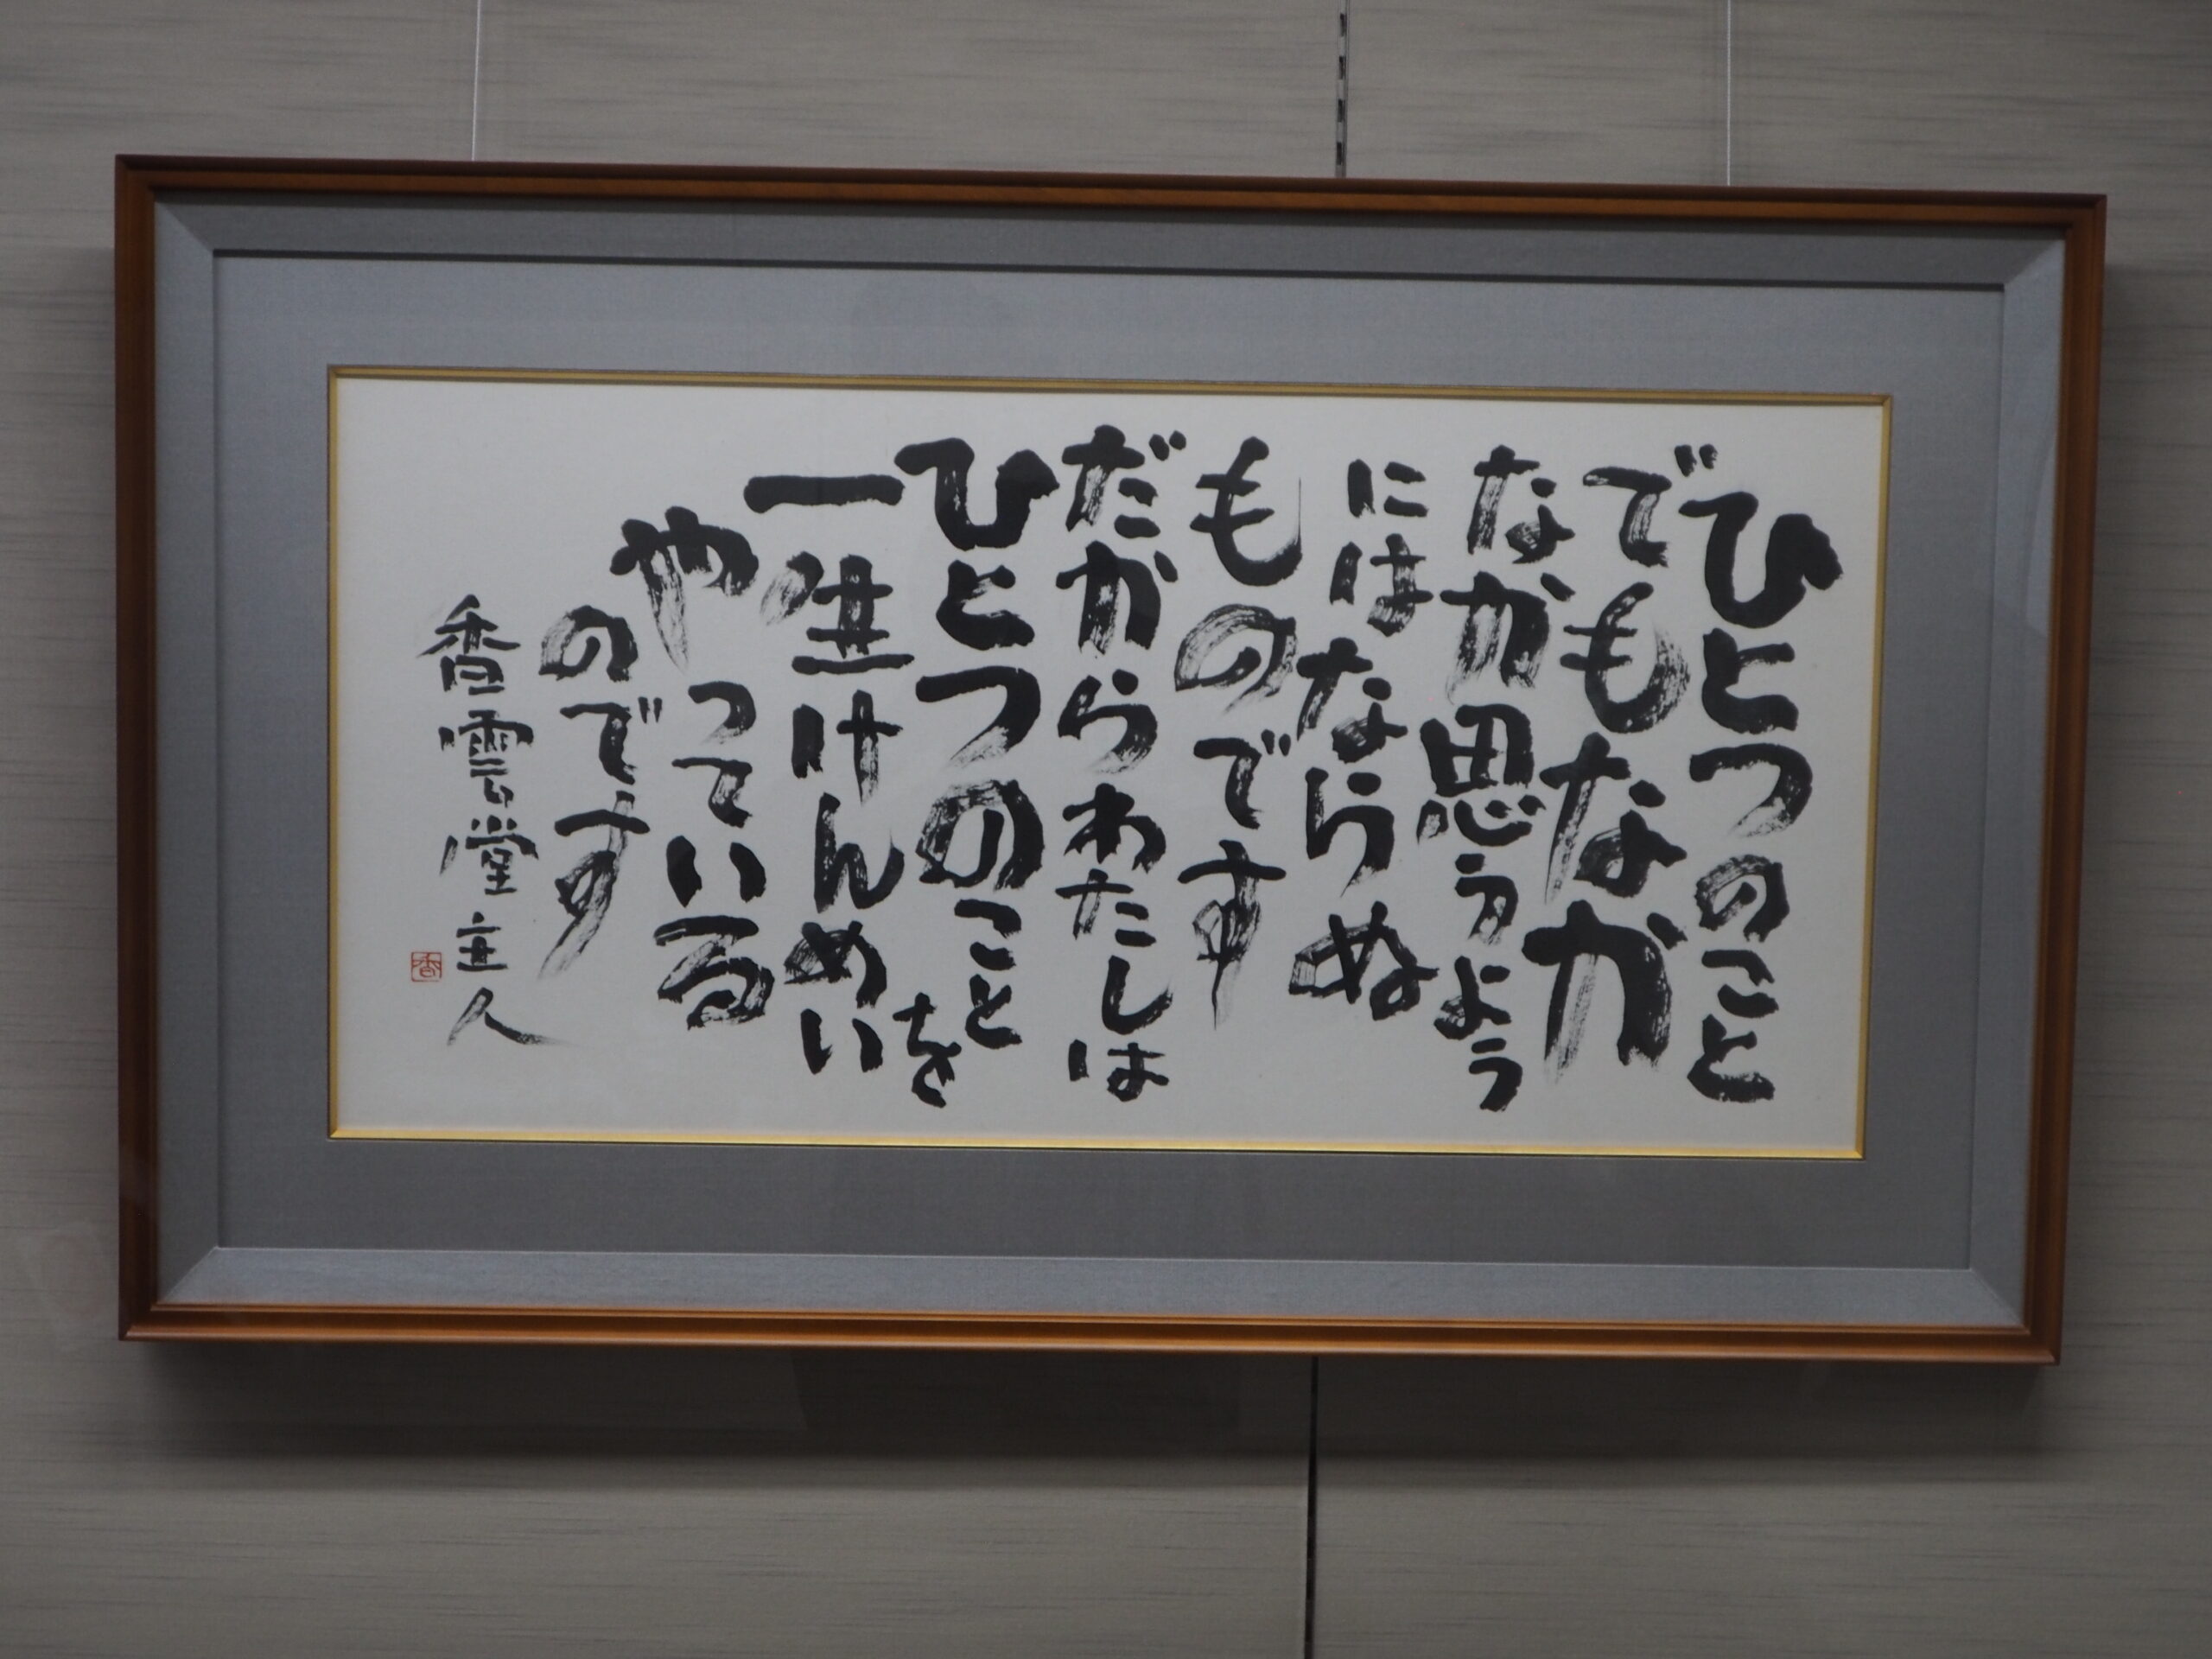 ひとつのこと
でもなが
なが思うよう
にはならぬ
ものです
だからわたしは
ひとつのことを
一生けんめい
やっている
のです
香雲堂主人
香